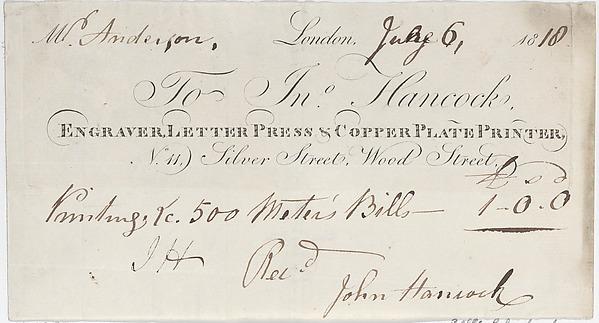 Mr. Anderson, London, July 6, 1818
To Jno. Hancock,
ENGRAVER, LETTER PRESS & COPPER PLATE PRINTER,
No. 11, Silver Street, Wood Street.
£ s d
Printing &c. 500 Meter's Bills — 1-0-0
JH Recd
John Hancock